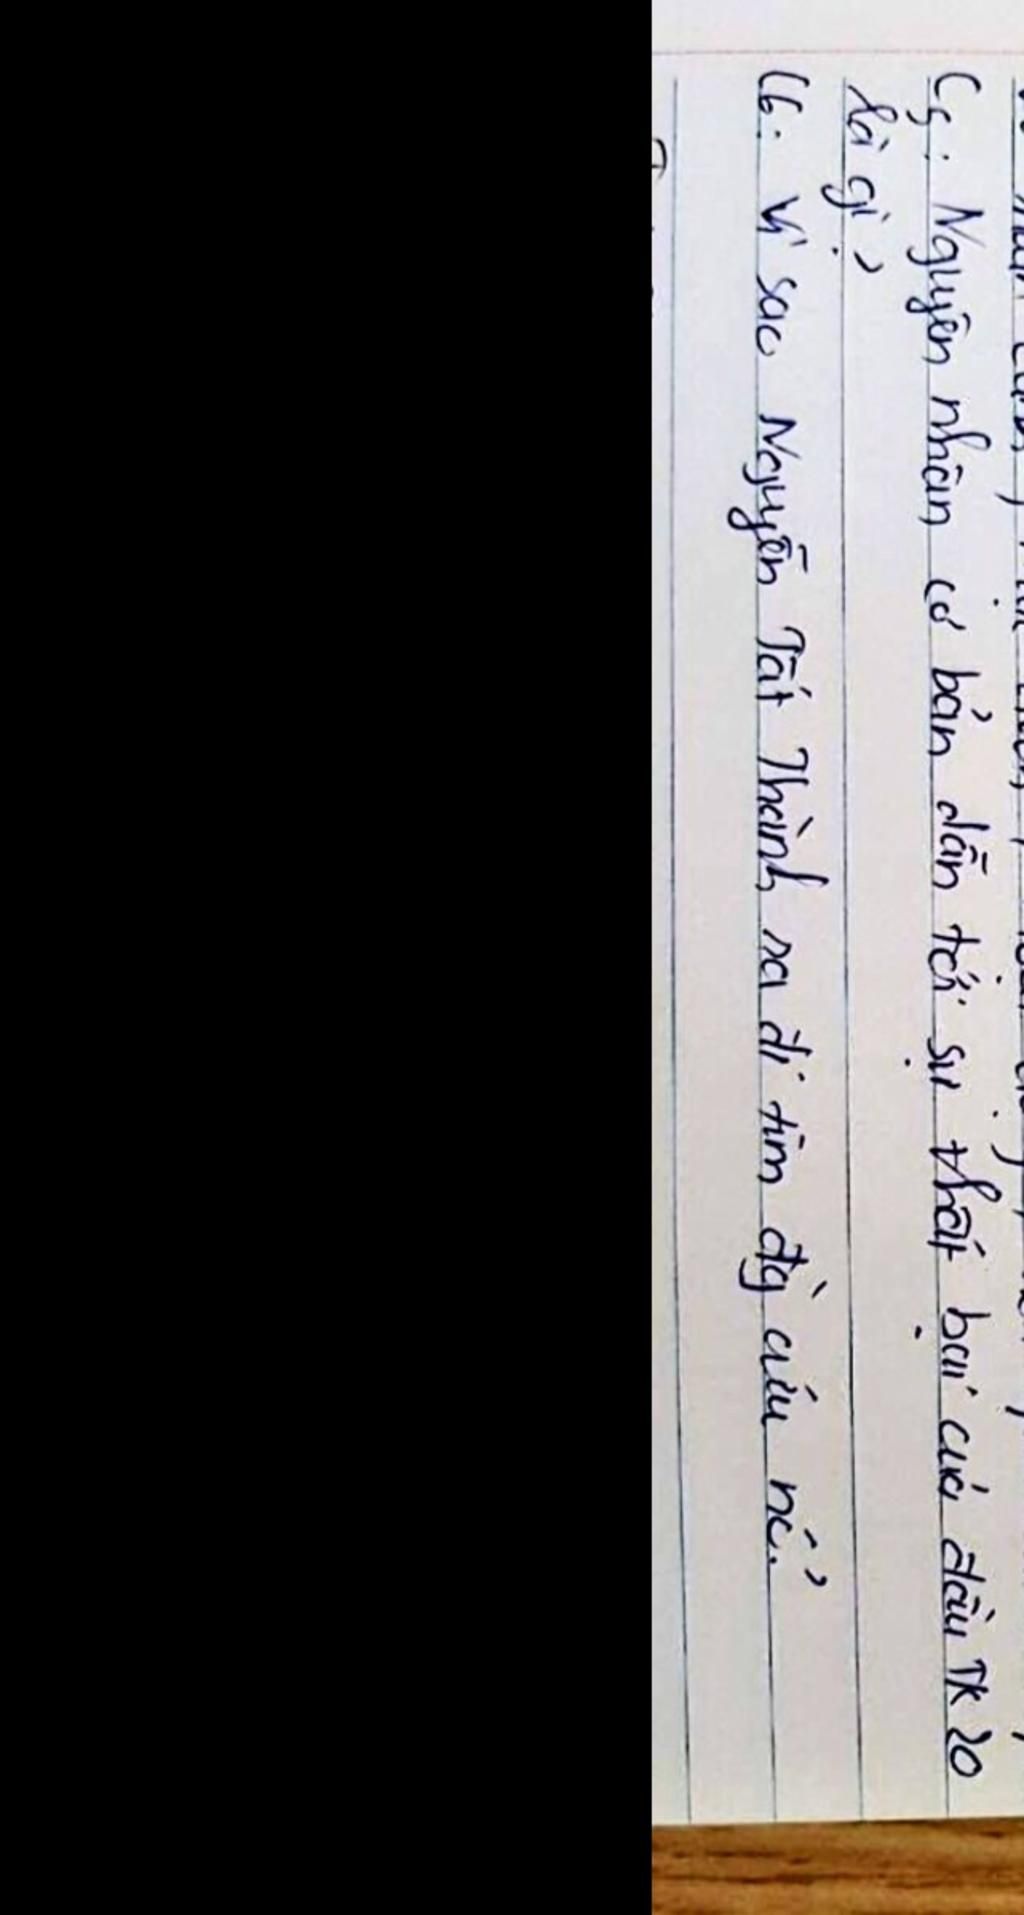 C5: Nguyên nhân cơ bản dẫn tới sự thất bại cuối đầu TK 20
là gì?
C6: Vì sao Nguyễn Tất Thành ra đi tìm đg cứu nc?